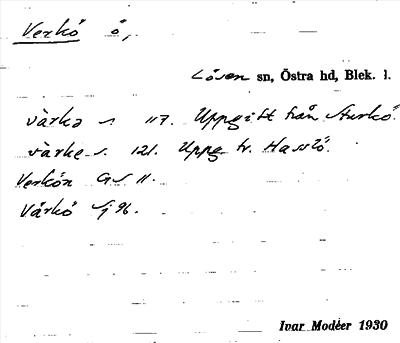 Verkö ö,
Lösen sn, Östra hd, Blek. l.
vàrkə s 117. Uppgift från Sturkö.
vàrke s. 121. Uppg fr. Hasslö.
Verkön GS 11.
Vårkö Sj 96.
Ivar Modéer 1930